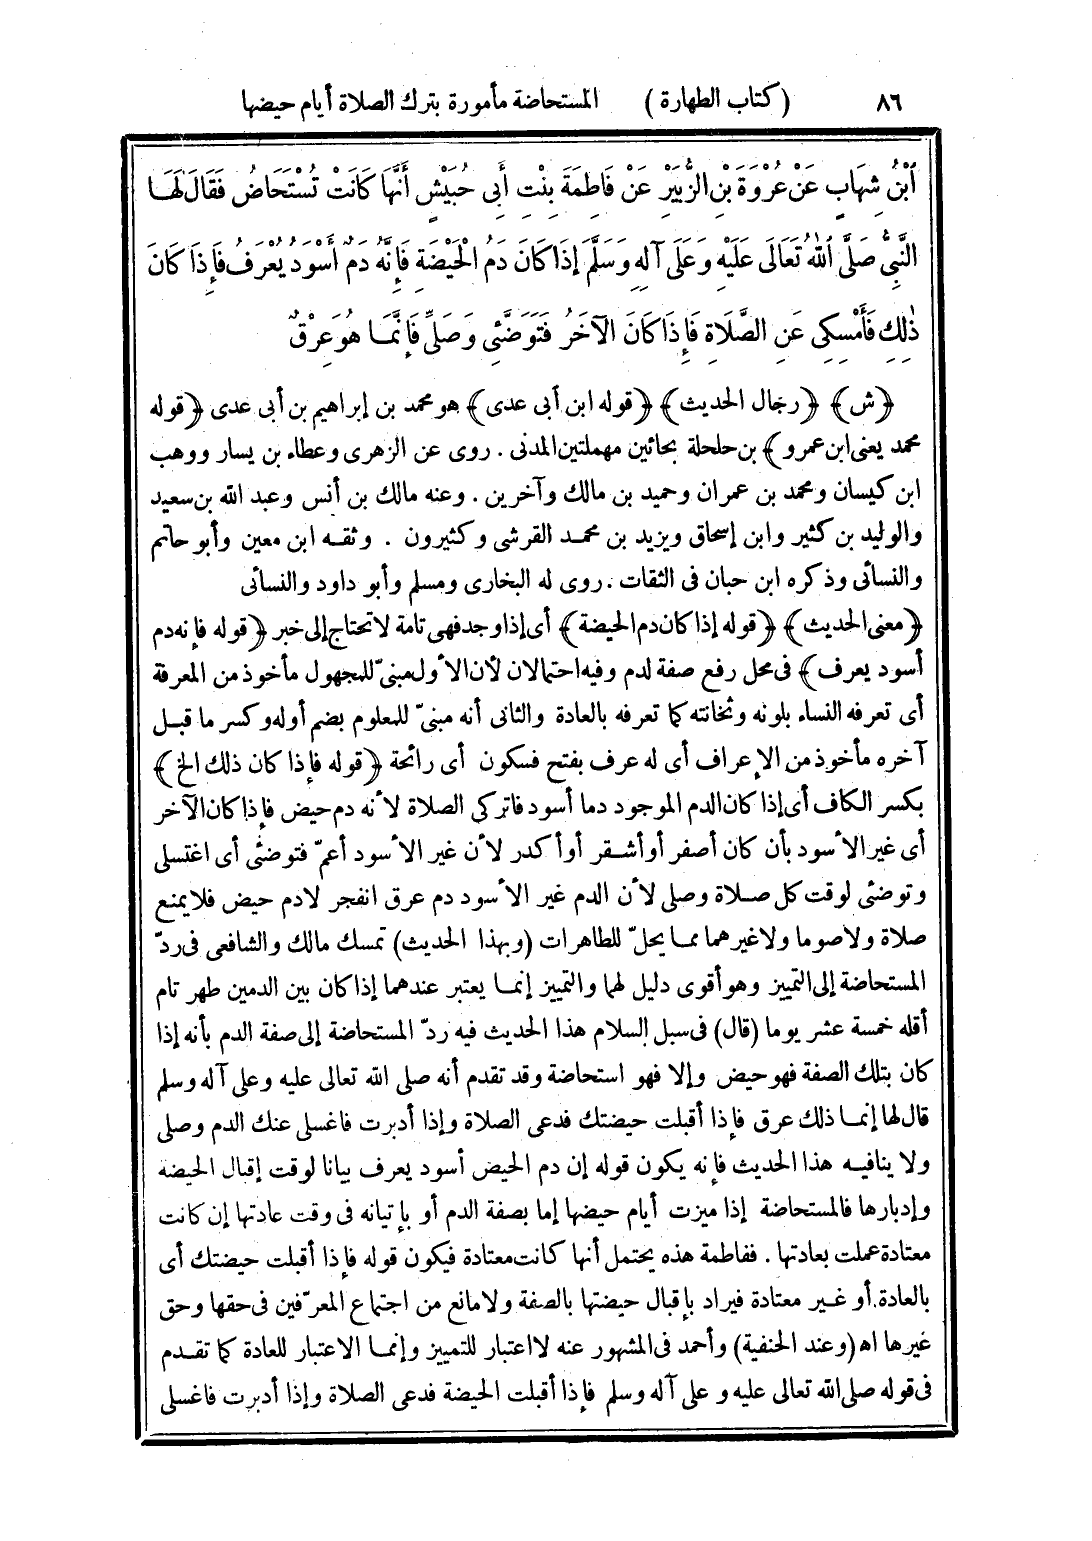 ٨٦ (كتاب الطهارة) المستحاضة مأمورة بترك الصلاة أيام حيضها
ٱبْنُ شِهَابٍ عَنْ عُرْوَةَ بْنِ الزُّبَيْرِ عَنْ فَاطِمَةَ بِنْتِ أَبِى حُبَيْشٍ أَنَّهَا كَانَتْ تُسْتَحَاضُ فَقَالَ لَهَا
النَّبِىُّ صَلَّى ٱللهُ تَعَالَى عَلَيْهِ وَعَلَى آلِهِ وَسَلَّمَ إِذَا كَانَ دَمُ الْحَيْضَةِ فَإِنَّهُ دَمٌ أَسْوَدُ يُعْرَفُ فَإِذَا كَانَ
ذٰلِكِ فَأَمْسِكِى عَنِ الصَّلَاةِ فَإِذَا كَانَ الآخَرُ فَتَوَضَّئِى وَصَلِّى فَإِنَّمَا هُوَ عِرْقٌ
﴿ش﴾ ﴿رجال الحديث﴾ ﴿قوله ابن أبى عدى﴾ هو محمد بن إبراهيم بن أبى عدى ﴿قوله
محمد يعنى ابن عمرو﴾ بن حلحلة بحائين مهملتين المدنى . روى عن الزهرى وعطاء بن يسار ووهب
ابن كيسان ومحمد بن عمران وحميد بن مالك وآخرين . وعنه مالك بن أنس وعبد الله بن سعيد
والوليد بن كثير وابن إسحاق ويزيد بن محمد القرشى وكثيرون . وثقه ابن معين وأبو حاتم
والنسائى وذكره ابن حبان فى الثقات . روى له البخارى ومسلم وأبو داود والنسائى
﴿معنى الحديث﴾ ﴿قوله إذا كان دم الحيضة﴾ أى إذا وجد فهى تامة لا تحتاج إلى خبر ﴿قوله فإنه دم
أسود يعرف﴾ فى محل رفع صفة لدم وفيه احتمالان لأن الأول مبنىّ للمجهول مأخوذ من المعرفة
أى تعرفه النساء بلونه وثخانته كما تعرفه بالعادة والثانى أنه مبنىّ للمعلوم بضم أوله وكسر ما قبل
آخره مأخوذ من الإعراف أى له عرف بفتح فسكون أى رائحة ﴿قوله فإذا كان ذلك الخ﴾
بكسر الكاف أى إذا كان الدم الموجود دما أسود فاتركى الصلاة لأنه دم حيض فإذا كان الآخر
أى غير الأسود بأن كان أصفر أو أشقر أو أكدر لأن غير الأسود أعمّ فتوضئى أى اغتسلى
وتوضئى لوقت كل صلاة وصلى لأن الدم غير الأسود دم عرق انفجر لا دم حيض فلا يمنع
صلاة ولا صوما ولا غيرهما مما يحلّ للطاهرات (وبهذا الحديث) تمسك مالك والشافعى فى ردّ
المستحاضة إلى التمييز وهو أقوى دليل لهما والتمييز إنما يعتبر عندهما إذا كان بين الدمين طهر تام
أقله خمسة عشر يوما (قال) فى سبل السلام هذا الحديث فيه ردّ المستحاضة إلى صفة الدم بأنه إذا
كان بتلك الصفة فهو حيض وإلا فهو استحاضة وقد تقدم أنه صلى الله تعالى عليه وعلى آله وسلم
قال لها إنما ذلك عرق فإذا أقبلت حيضتك فدعى الصلاة وإذا أدبرت فاغسلى عنك الدم وصلى
ولا ينافيه هذا الحديث فإنه يكون قوله إن دم الحيض أسود يعرف بيانا لوقت إقبال الحيضة
وإدبارها فالمستحاضة إذا ميزت أيام حيضها إما بصفة الدم أو بإتيانه فى وقت عادتها إن كانت
معتادة عملت بعادتها . ففاطمة هذه يحتمل أنها كانت معتادة فيكون قوله فإذا أقبلت حيضتك أى
بالعادة أو غير معتادة فيراد بإقبال حيضتها بالصفة ولا مانع من اجتماع المعرّفين فى حقها وحق
غيرها اه (وعند الحنفية) وأحمد فى المشهور عنه لا اعتبار للتمييز وإنما الاعتبار للعادة كما تقدم
فى قوله صلى الله تعالى عليه وعلى آله وسلم فإذا أقبلت الحيضة فدعى الصلاة وإذا أدبرت فاغسلى